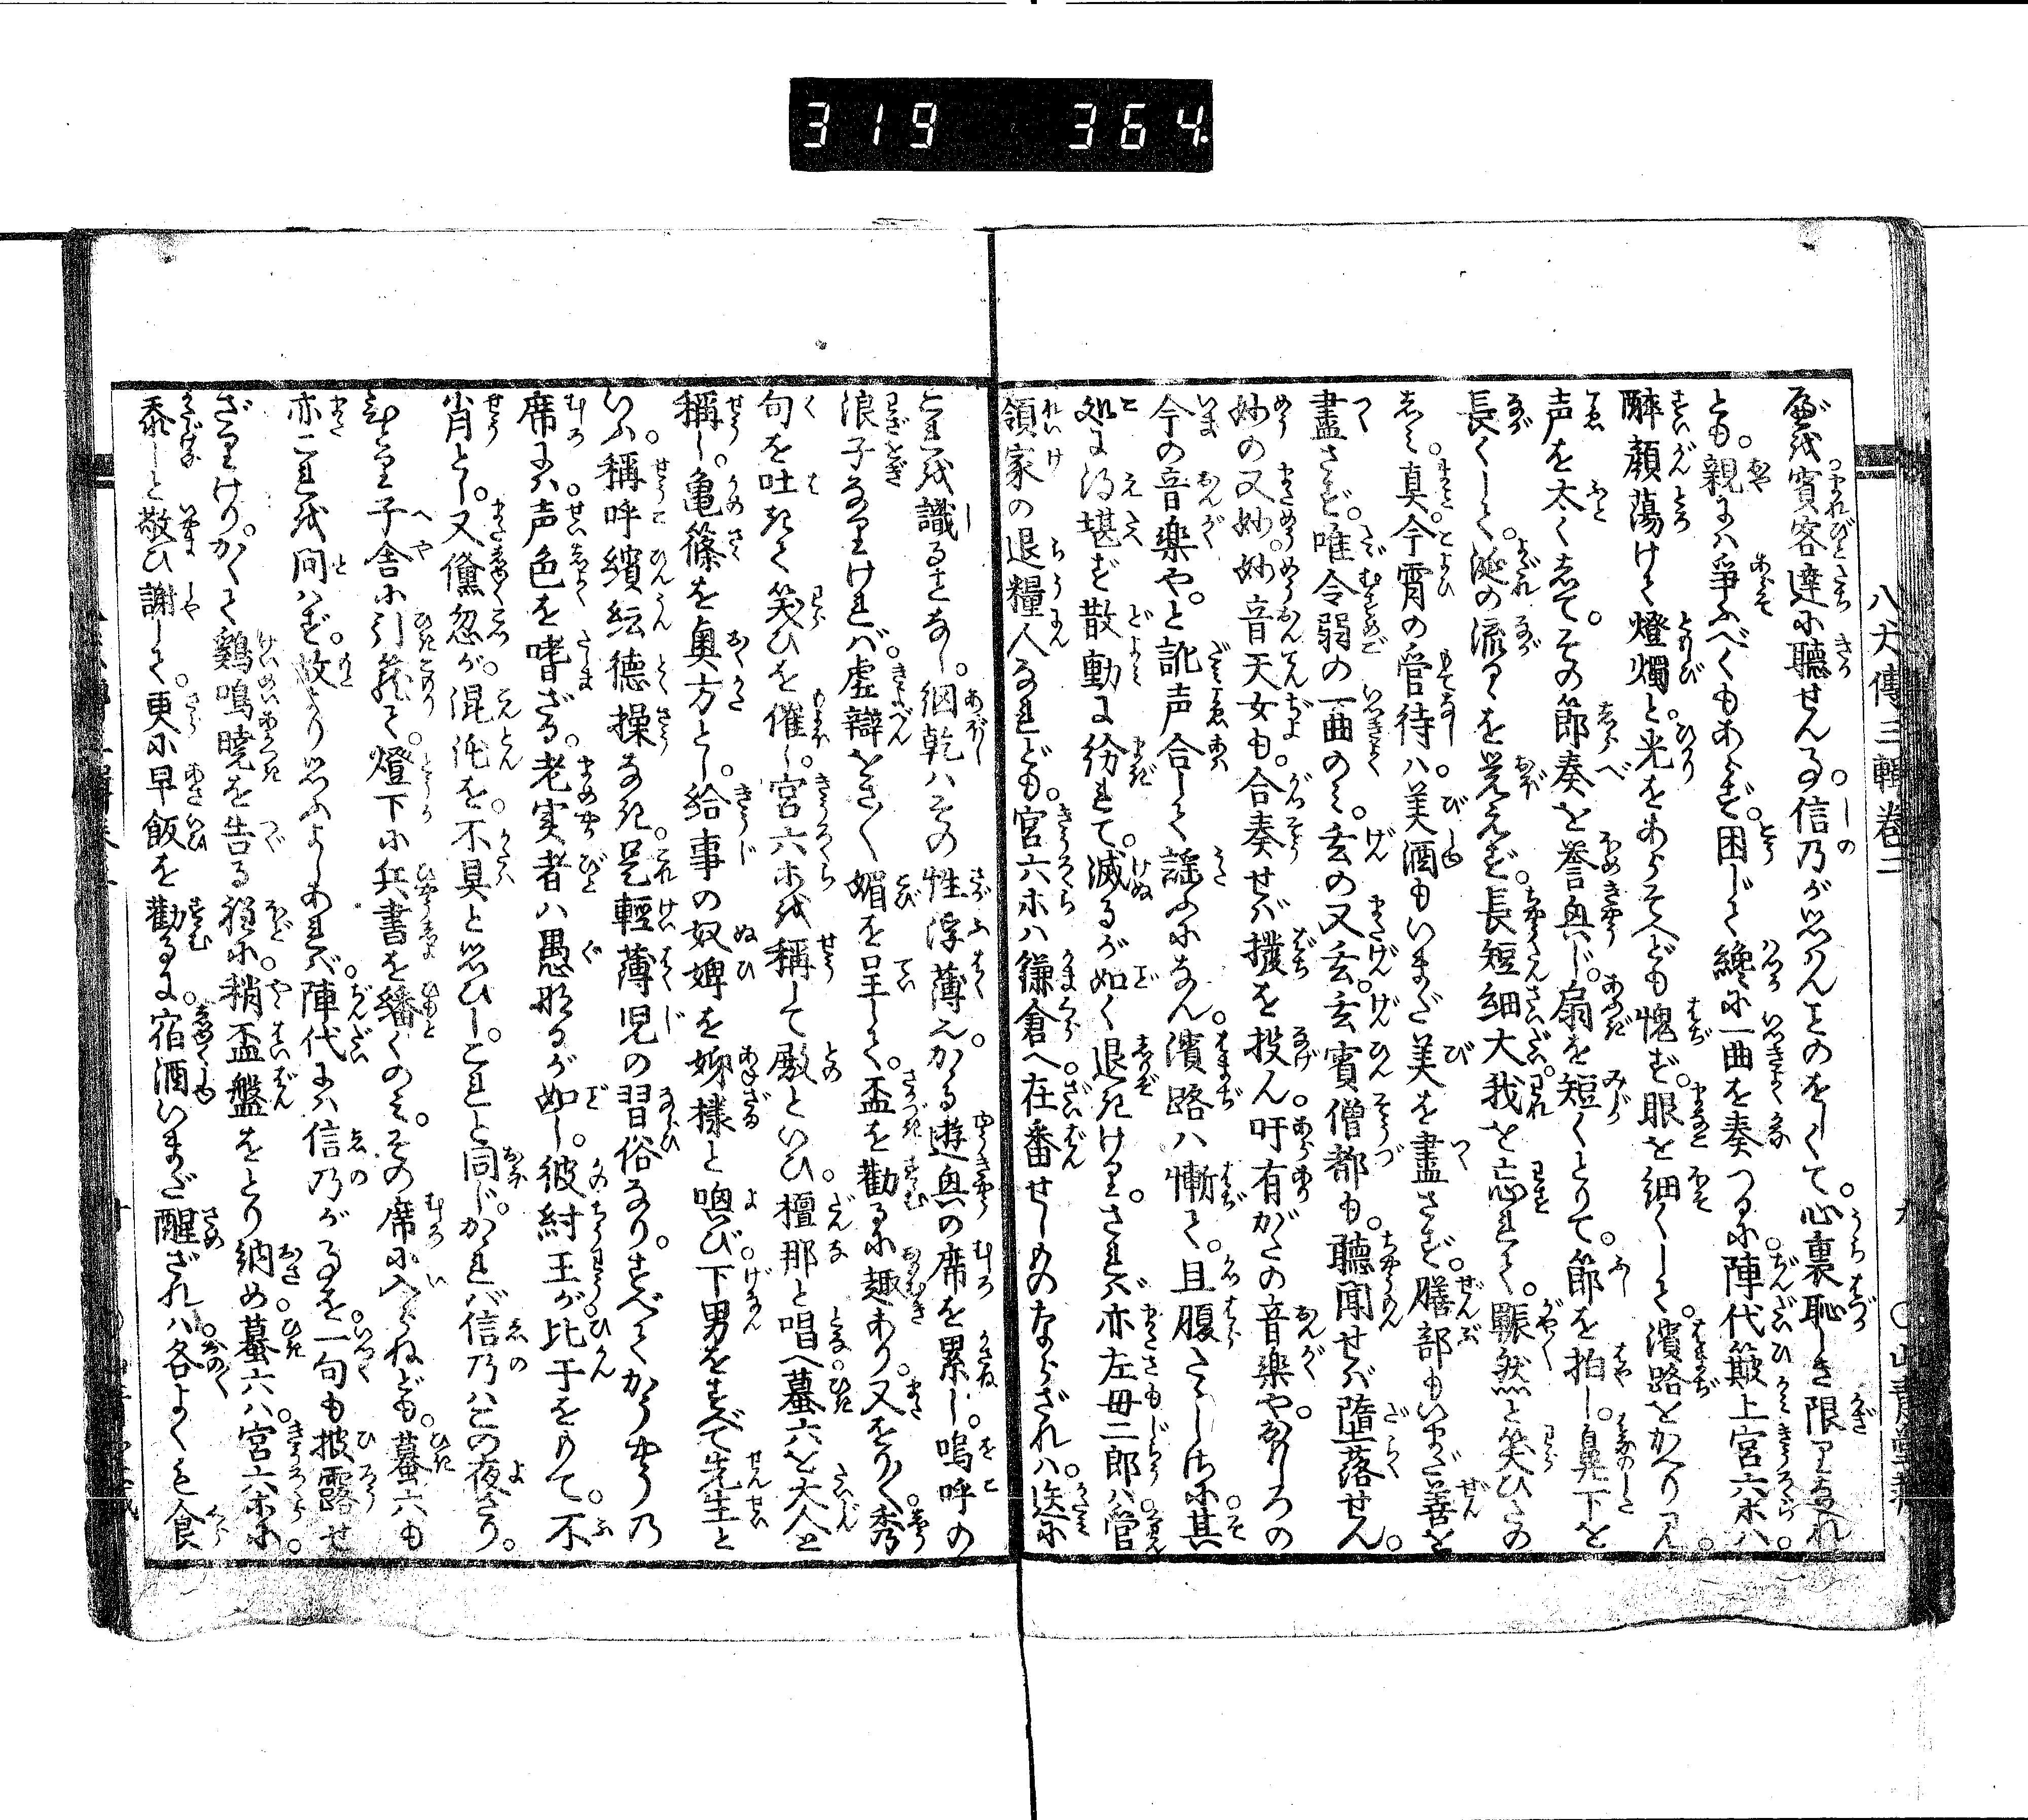 319 364
八犬傳三輯卷二
九
度、賓客達に聴せんる。信乃が思はんことのをしくて。心裏恥しき限りなれ
とも。親には爭ふべくもあらず。困じて纔に一曲を奏つるに。陣代簸上宮六ホハ。
醉顔蕩けて燈燭と。光をあらそへども愧ず。眼を細くして。濱路をかへり見。
声を太くして。その節奏を誉興じ。扇を短くとりて。節を拍し。鼻下を
長くして。涎の流るゝを覚えず。長短細大我を忘れて。囅然と笑ひさゝめ
きし。真今霄の管待ハ。美酒もいまだ美を盡さず。膳部もいまだ善を
盡さず。唯令弱の一曲のみ。玄の又玄。玄賓僧都も。聴聞せバ墮落せん。
妙の又妙。妙音天女も。合奏せバ撥を投ん。吁有がたの音楽や。おもしろの
今の音楽や。と訛声合して謡ふになん。濱路ハ慚て。且腹たゝしさに。其
処に得堪ず散動に紛れて。滅るが如く退きけり。されバ亦左母二郎ハ。管
領家の退糧人なれども。宮六ホハ鎌倉へ。在番せしものならざれハ。迭に
これを識るさなし。網乾ハその性浮薄。かゝる遊興の席を累し。嗚呼の
浪子なりけれバ。虚辯をさく媚を呈して。盃を勸るに趣あり。又をりく秀
句を吐きて笑ひを催し。宮六ホを稱して殿といひ。檀那と唱へ。蟇六を大人と
稱し。亀篠を奥方とし。給事の奴婢を姉樣と喚び。下男をすべて先生と
いふ。稱呼繽紜德操なき。是輕薄児の習俗なり。すべてかうやうの
席には。声色を嗜ざる。老実者ハ愚なるが如し。彼紂王が比干をもて。不
肖とし。又儵忽が。混沌を。不具と思ひし。これと同じ。かゝれバ信乃ハこの夜さり。
ひとり子舎に引籠て。燈下に兵書を繙くのみ。その席に入らねども。蟇六も
亦これを問ハず。故より思ふよしあれバ。陣代には信乃がるを。一句も披露せ
ざりけり。かくて鷄鳴曉を告る程に。稍盃盤をとり納め。蟇六ハ宮六ホに。
忝しと敬ひ謝して。更に早飯を勸るに。宿酒いまだ醒ざれハ。各よくも食